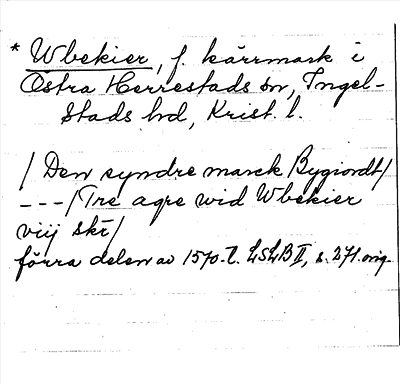 * Wbekier, f. kärrmark i
Östra Herrestads sn, Ingel-
stads hd, Krist. l.
/ Den syndre marck Bygiordt/
---/Tre agre wid Wbekier
viij skr/
förra delen av 1570-t. LSLB II, s. 271. orig.